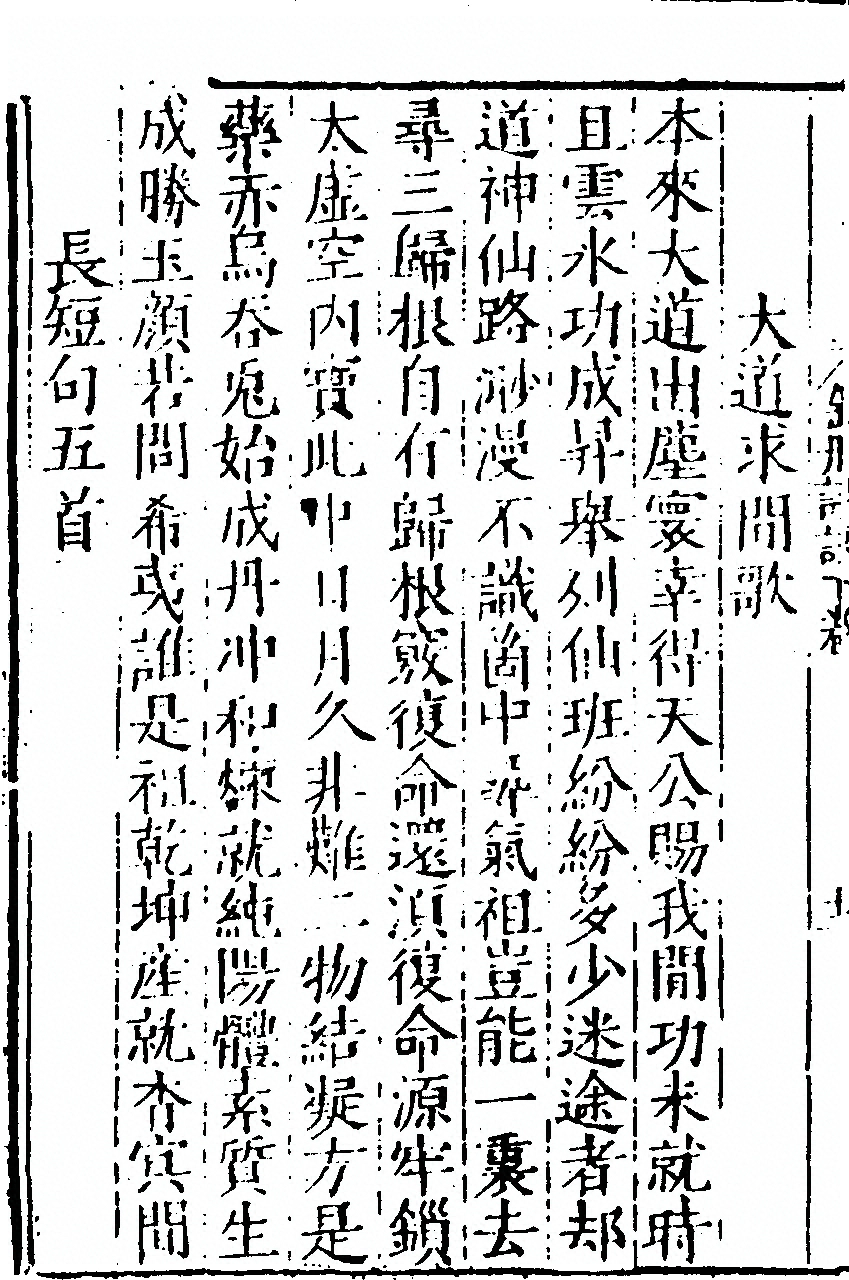 大道求問歌
本來大道出塵寰幸得天公賜我閒功未就時
且雲水功成昇舉列仙班紛紛多少迷途者却
道神仙路渺漫不識箇中眞氣祖豈能一裏去
尋三歸根自有歸根竅復命還須復命源牢鎖
太虛空內寶此中日月久非難二物結凝方是
藥赤烏吞兎始成丹冲和煉就純陽體素質生
成勝玉顔若問希夷誰是祖乾坤産就杳冥間
長短句五首